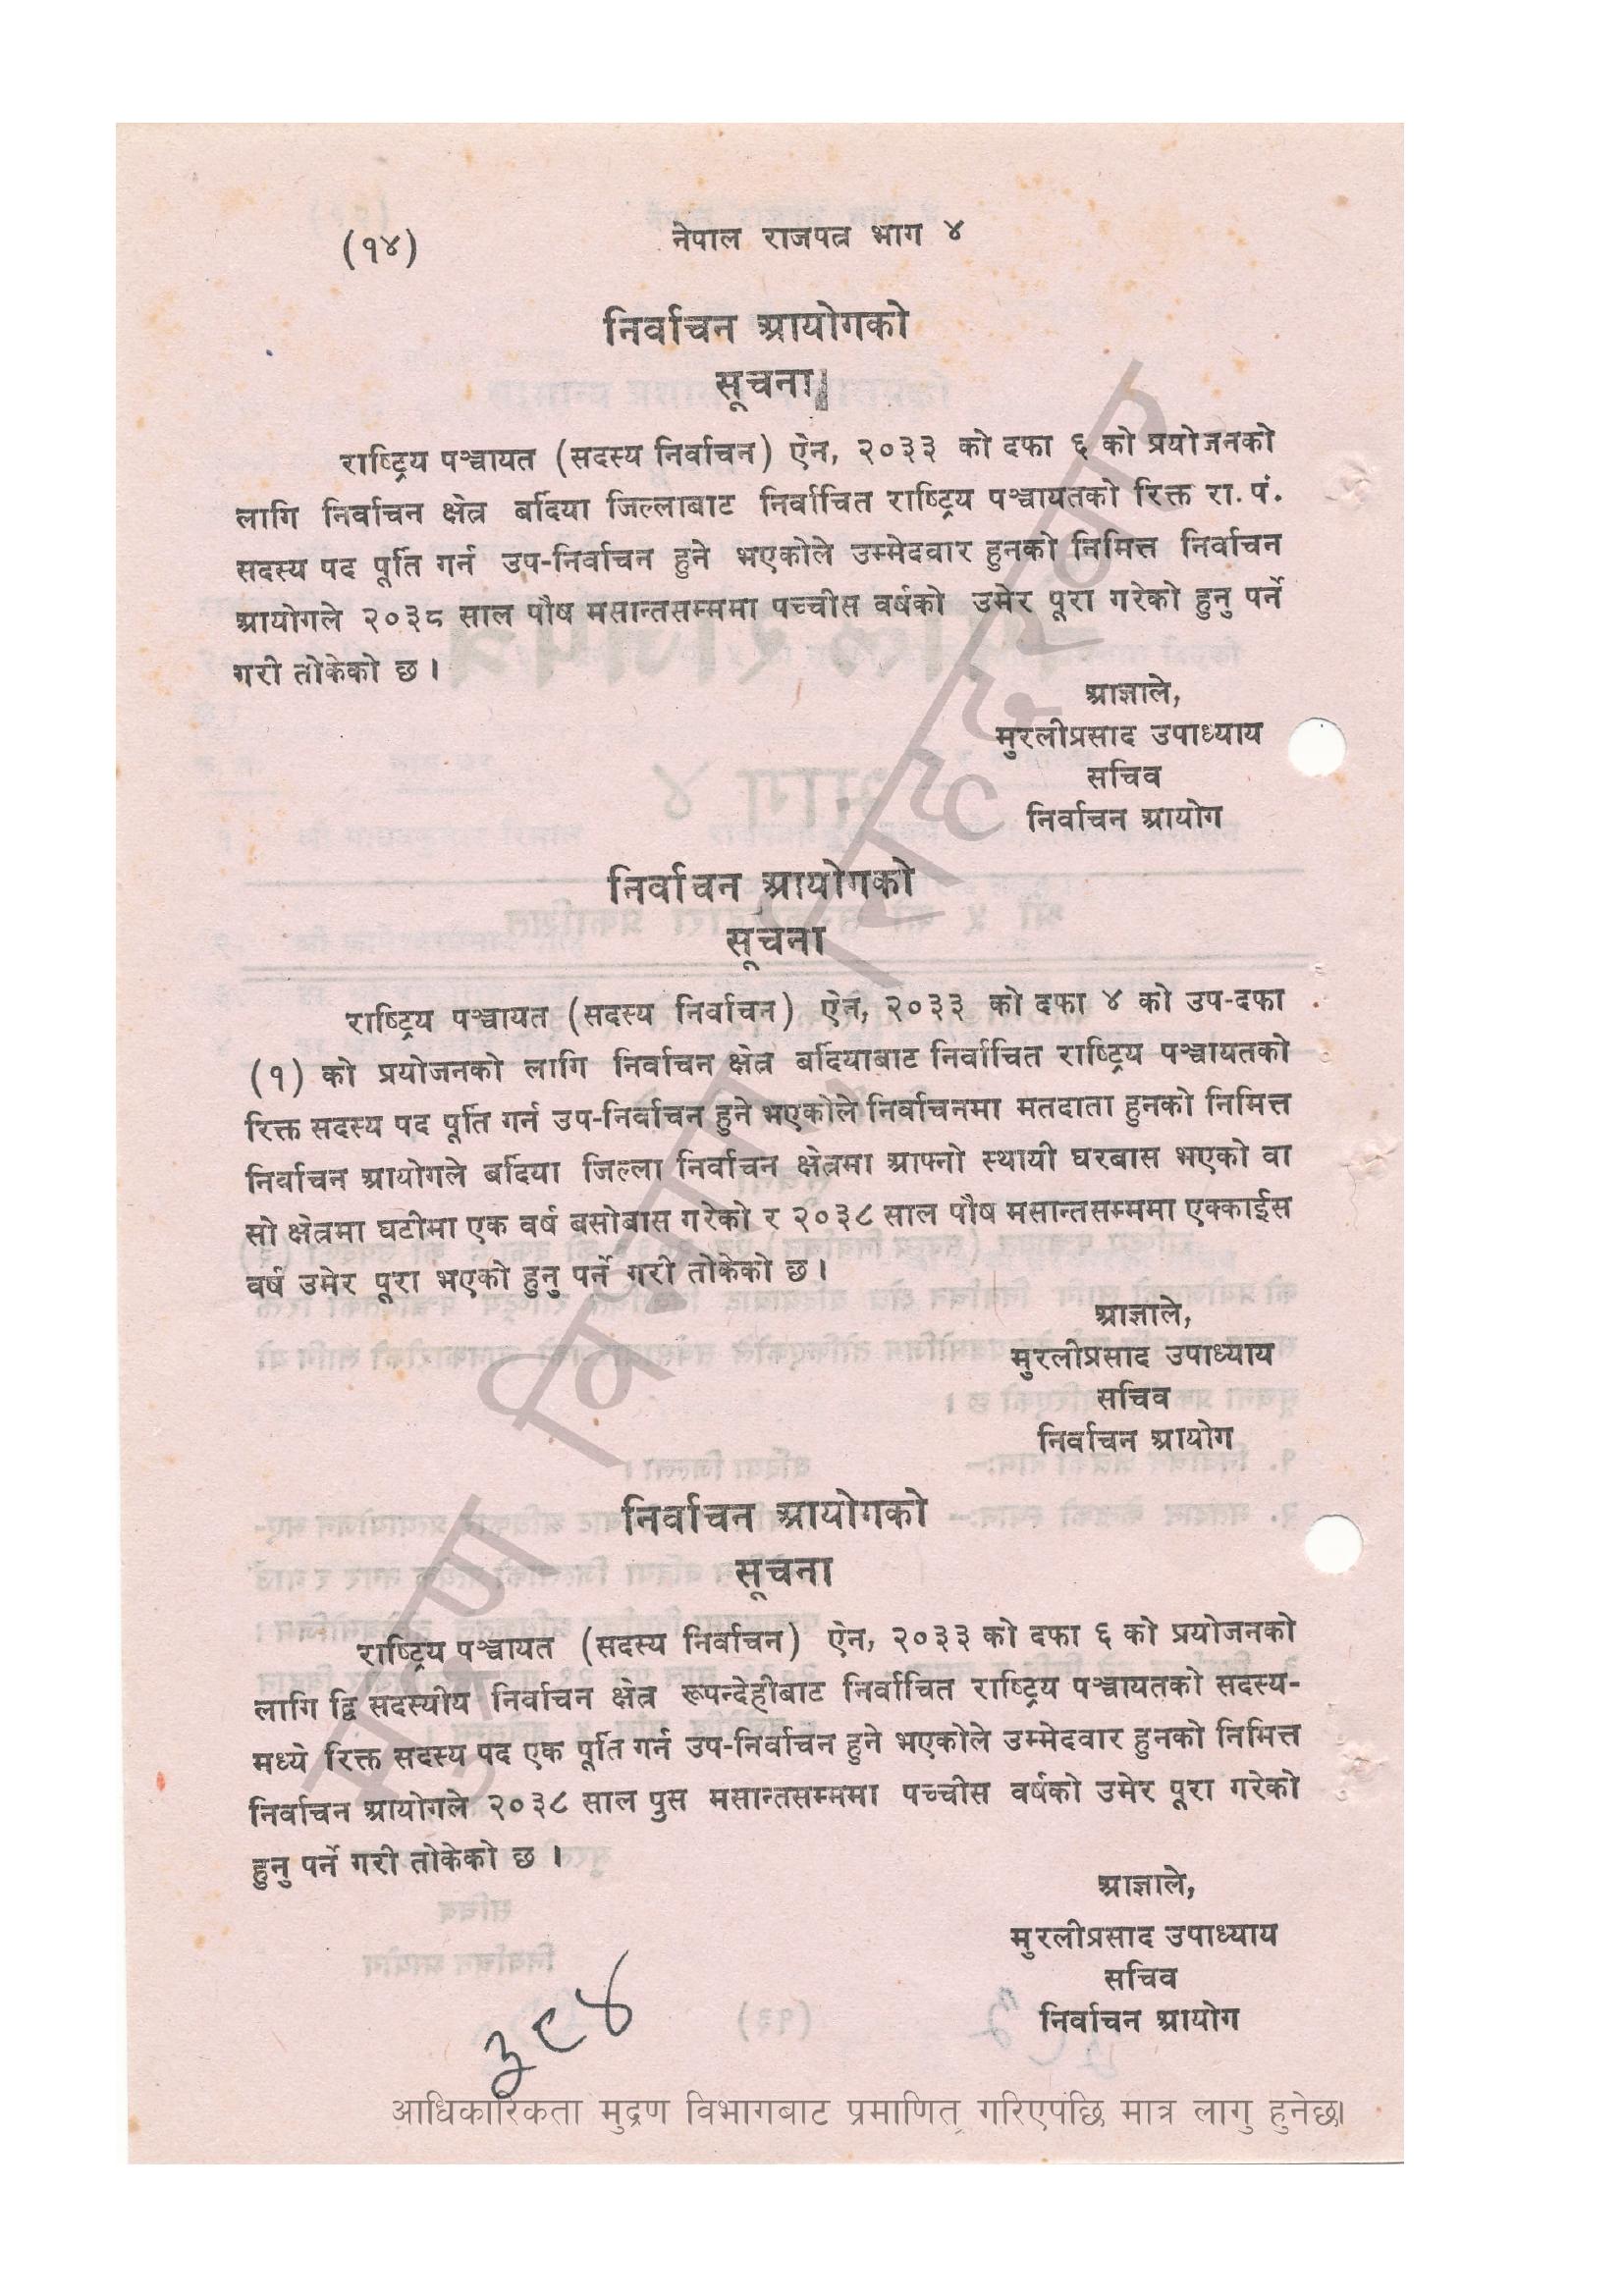 (१४)
नेपाल राजपत्र भाग ४
निर्वाचन आयोगको
सूचना
राष्ट्रिय पञ्चायत (सदस्य निर्वाचन) ऐन, २०३३ को दफा ६ को प्रयोजनको
लागि निर्वाचन क्षेत्र बर्दिया जिल्लाबाट निर्वाचित राष्ट्रिय पञ्चायतको रिक्त रा. पं.
सदस्य पद पूर्ति गर्न उप-निर्वाचन हुने भएकोले उम्मेदवार हुनको निमित्त निर्वाचन
आयोगले २०३८ साल पौष मसान्तसम्ममा पच्चीस वर्षको उमेर पूरा गरेको हुनु पर्ने
गरी तोकेको छ ।
आज्ञाले,
मुरलीप्रसाद उपाध्याय
सचिव
निर्वाचन आयोग
निर्वाचन आयोगको
सूचना
राष्ट्रिय पञ्चायत (सदस्य निर्वाचन) ऐन, २०३३ को दफा ४ को उप-दफा
(१) को प्रयोजनको लागि निर्वाचन क्षेत्र बर्दियाबाट निर्वाचित राष्ट्रिय पञ्चायतको
रिक्त सदस्य पद पूर्ति गर्न उप-निर्वाचन हुने भएकोले निर्वाचनमा मतदाता हुनको निमित्त
निर्वाचन आयोगले बर्दिया जिल्ला निर्वाचन क्षेत्रमा आफ्नो स्थायी घरबास भएको वा
सो क्षेत्रमा घटीमा एक वर्ष बसोबास गरेको र २०३८ साल पौष मसान्तसम्ममा एक्काईस
वर्ष उमेर पूरा भएको हुनु पर्ने गरी तोकेको छ ।
आज्ञाले,
मुरलीप्रसाद उपाध्याय
सचिव
निर्वाचन आयोग
निर्वाचन आयोगको
सूचना
राष्ट्रिय पञ्चायत (सदस्य निर्वाचन) ऐन, २०३३ को दफा ६ को प्रयोजनको
लागि द्वि सदस्यीय निर्वाचन क्षेत्र रूपन्देहीबाट निर्वाचित राष्ट्रिय पञ्चायतको सदस्य-
मध्ये रिक्त सदस्य पद एक पूर्ति गर्न उप-निर्वाचन हुने भएकोले उम्मेदवार हुनको निमित्त
निर्वाचन आयोगले २०३८ साल पुस मसान्तसम्ममा पच्चीस वर्षको उमेर पूरा गरेको
हुनु पर्ने गरी तोकेको छ ।
आज्ञाले,
मुरलीप्रसाद उपाध्याय
सचिव
निर्वाचन आयोग
३८४
आधिकारिकता मुद्रण विभागबाट प्रमाणित् गरिएपछि मात्र लागु हुनेछ।